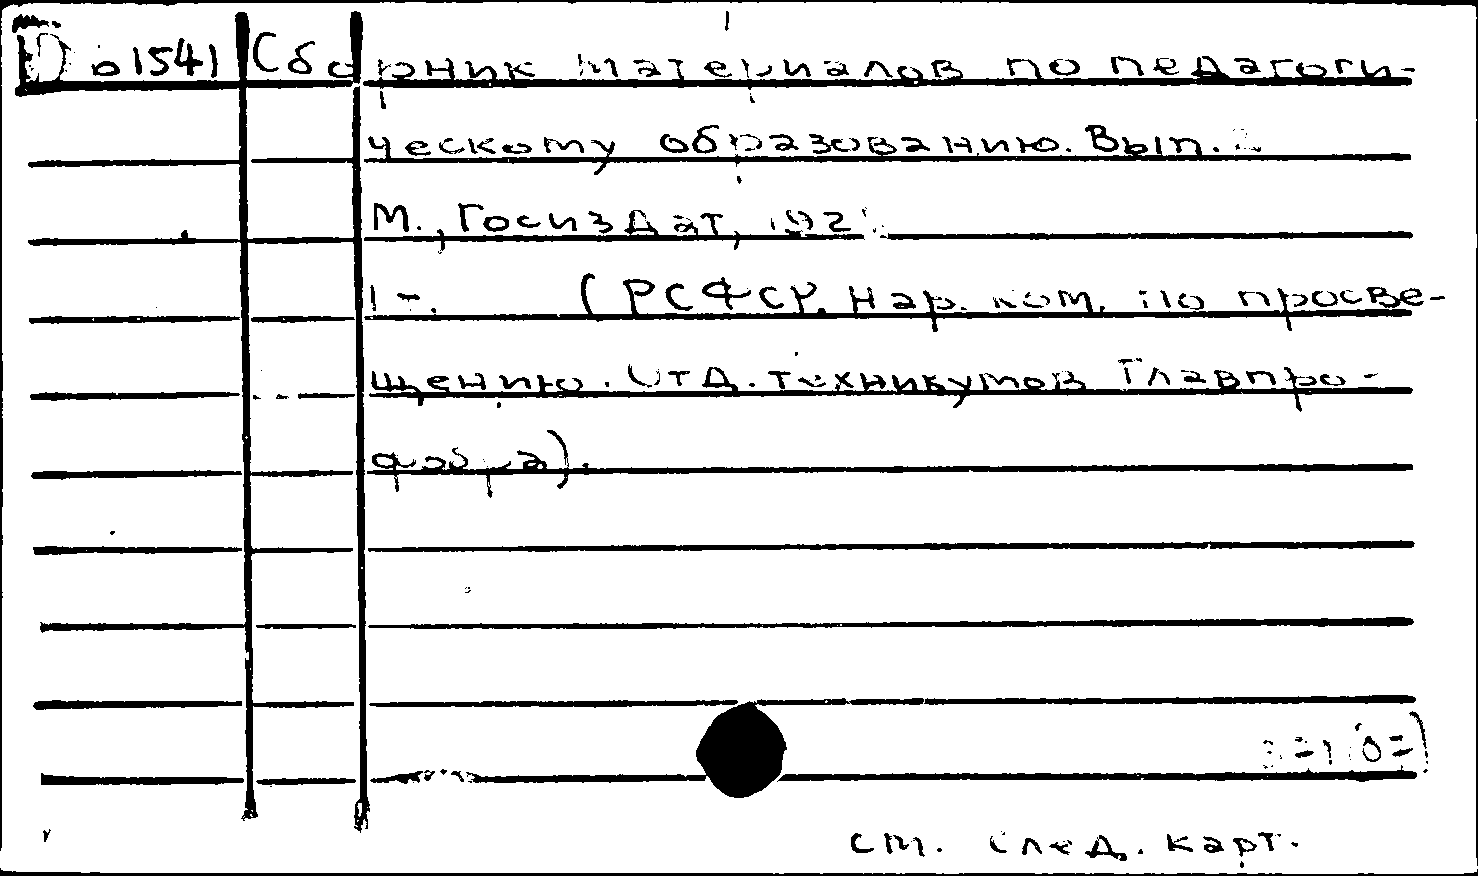 Сборник материалов по педагоги-
ческому образованию. Вып.
М., Госиздат,
(РСФСР. Нар. ком. по просве-
щению. Отд. техникумов Главпро-
фобра).
ст. след. карт.